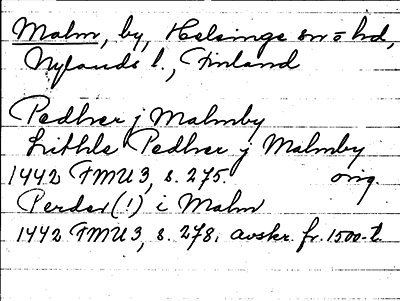 Malm, by, Helsinge sn o hd,
Nylands l., Finland
Pedher j Malmby
Lithle Pedher j Malmby
1442 FMU 3, s. 275. orig.
Perdar (!) i Malm
1442 FMU 3, s. 278. avskr. fr. 1500-t.